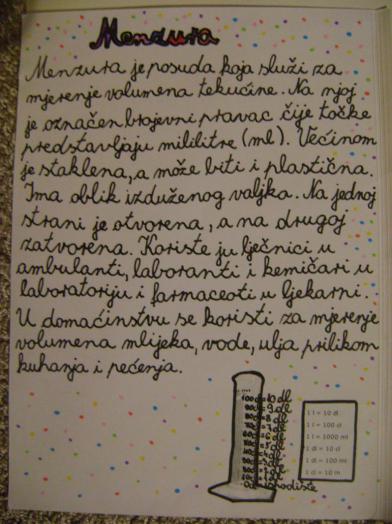 Menzura
Menzura je posuda koja služi za
mjerenje volumena tekućine. Na njoj
je označen brojevni pravac čije točke
predstavljaju mililitre (ml). Većinom
je staklena, a može biti i plastična.
Ima oblik izduženog valjka. Na jednoj
strani je otvorena, a na drugoj
zatvorena. Koriste ju lječnici u
ambulanti, laboranti i kemičari u
laboratoriju i farmaceoti u ljekarni.
U domaćinstvu se koristi za mjerenje
volumena mlijeka, vode, ulja prilikom
kuhanja i pečenja.
1 l = 10 dl
1 l = 100 cl
1 l = 1000 ml
1 dl = 10 cl
1 dl = 100 ml